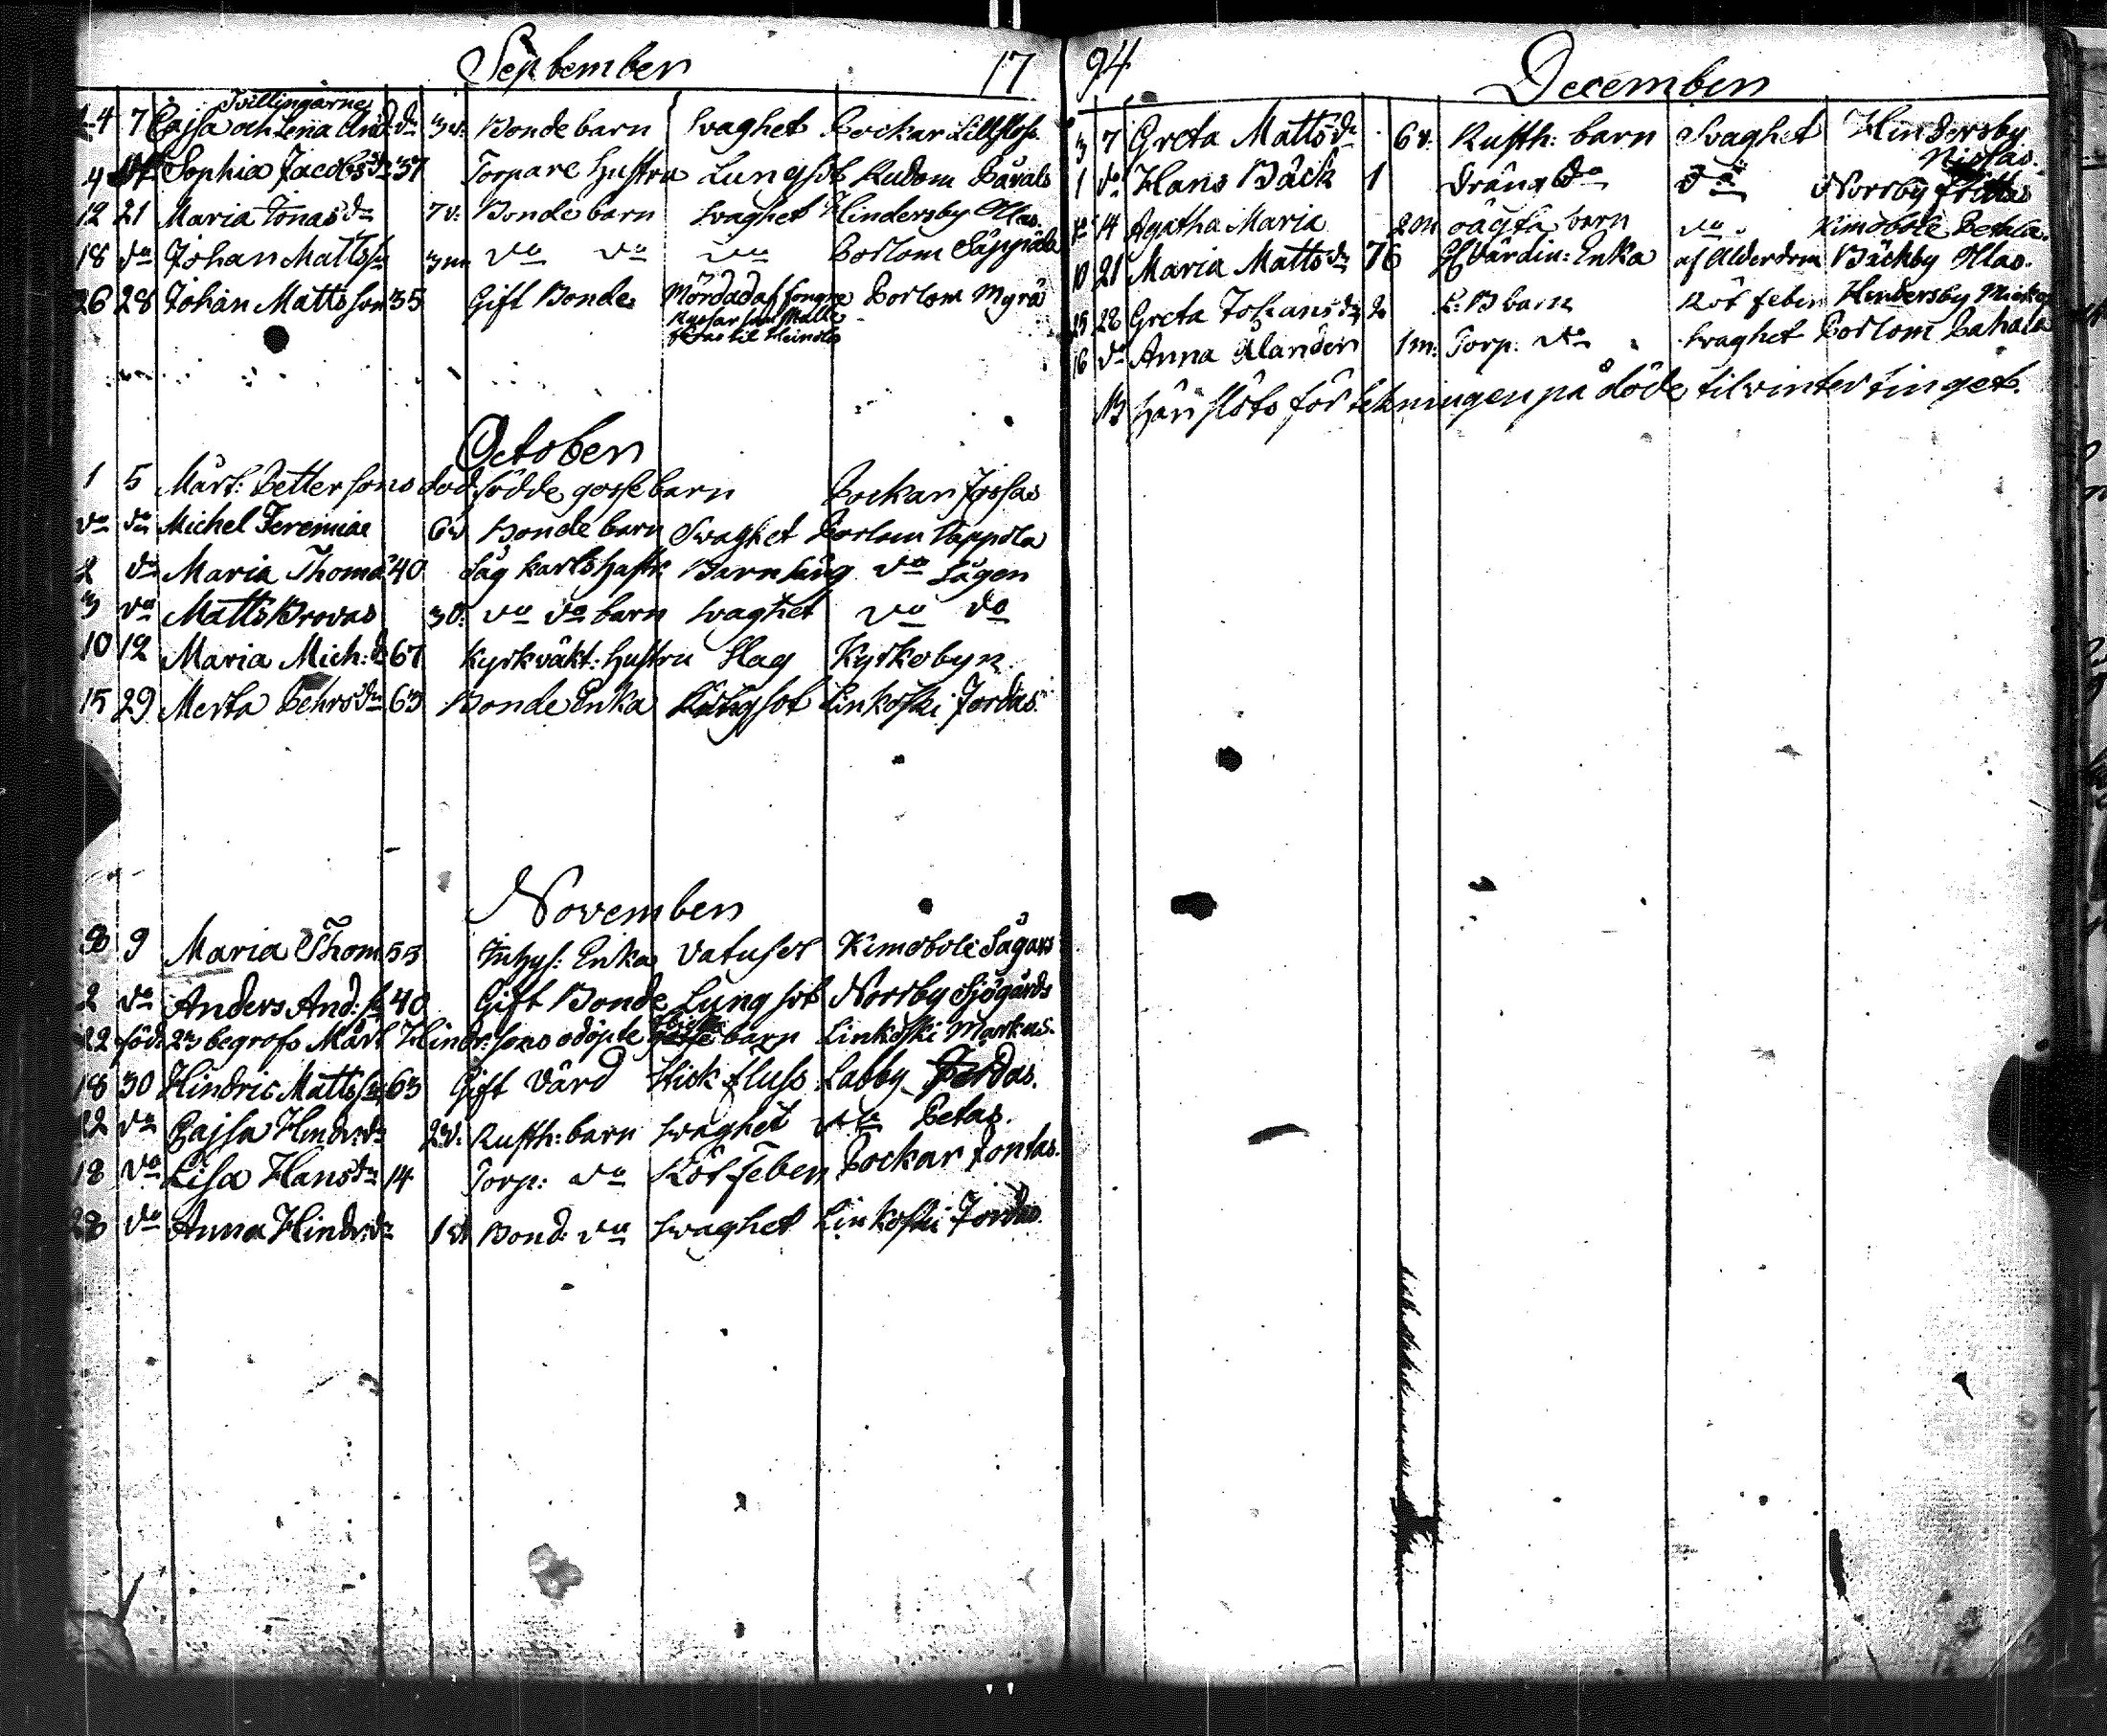 September 17
Tvillingarne
2-4 7 Cajsa och Lena And: dr 3 v: Bonde barn Svaghet Pockar Lillflofs
4 14 Sophia Jacobs dr 37 Torpare hustru Lungsot Rudom Påvals
12 21 Maria Jonas dr 7 v: Bonde barn svaghet Hindersby Ollas
18 do Johan Mattss 3 m do do do Porlom Säppälä
26 28 Johan Mattsson 35 Gift Bonde Mördad af fongne Porlom Myrä
Ryssar som
til Heinola
October
1 5 Mårt: Pettersons dödfödde gossebarn Pockar Jossas
do do Michel Jeremiae 6 d Bonde barn Svaghet Porlom Pappila
2 do Maria Thoma 40 Såg karls hustr Barnsäng do Sågen
3 do Matts Brovas 3 d: do do barn svaghet do do
10 12 Maria Mich: d 67 Kyrkväkt: hustru Slag Kyrkobyn
15 29 Merta Pehrs dr 63 Bonde Enka Lungsot Linkoski Jordas
November
8 9 Maria Thom 53 Inhys: Enka Vatusot Kimoböle Sågars
2 do Anders And: s 40 Gift Bonde Lungsot Norrby Sjögårds
22 föd: 23 begrofs Mårt Hindr: sons odöpte barn Linkoski Markus
18 30 Hindric Mattss 63 Gift Värd Stick fluss Labby Jordas.
22 do Cajsa Hindr: dr 2 d: Rusth: barn svaghet do Petas.
18 do Lisa Hans dr 14 Torp: do Rötfeber Pockar Jontas.
28 do Anna Hindr: dr 1 d Bond: do svaghet Linkoski Jordas.
94
December
3 7 Greta Matts dr 6 v: Rusth: barn Svaghet Hindersby
Nissas.
1 do Hans Bäck 1 dräng do do Norrby
12 14 Agatha Maria 2 m oägta barn do Kimoböle
10 21 Maria Matts dr 76 Värdin: Enka af Ålderdom Bäckby Ollas.
25 28 Greta Johans dr 2 barn Röt feber Hindersby
16 do Anna Alander 1 m: Torp: do svaghet Porlom
NB Här slöts förtekningen på döde til vintertinget.